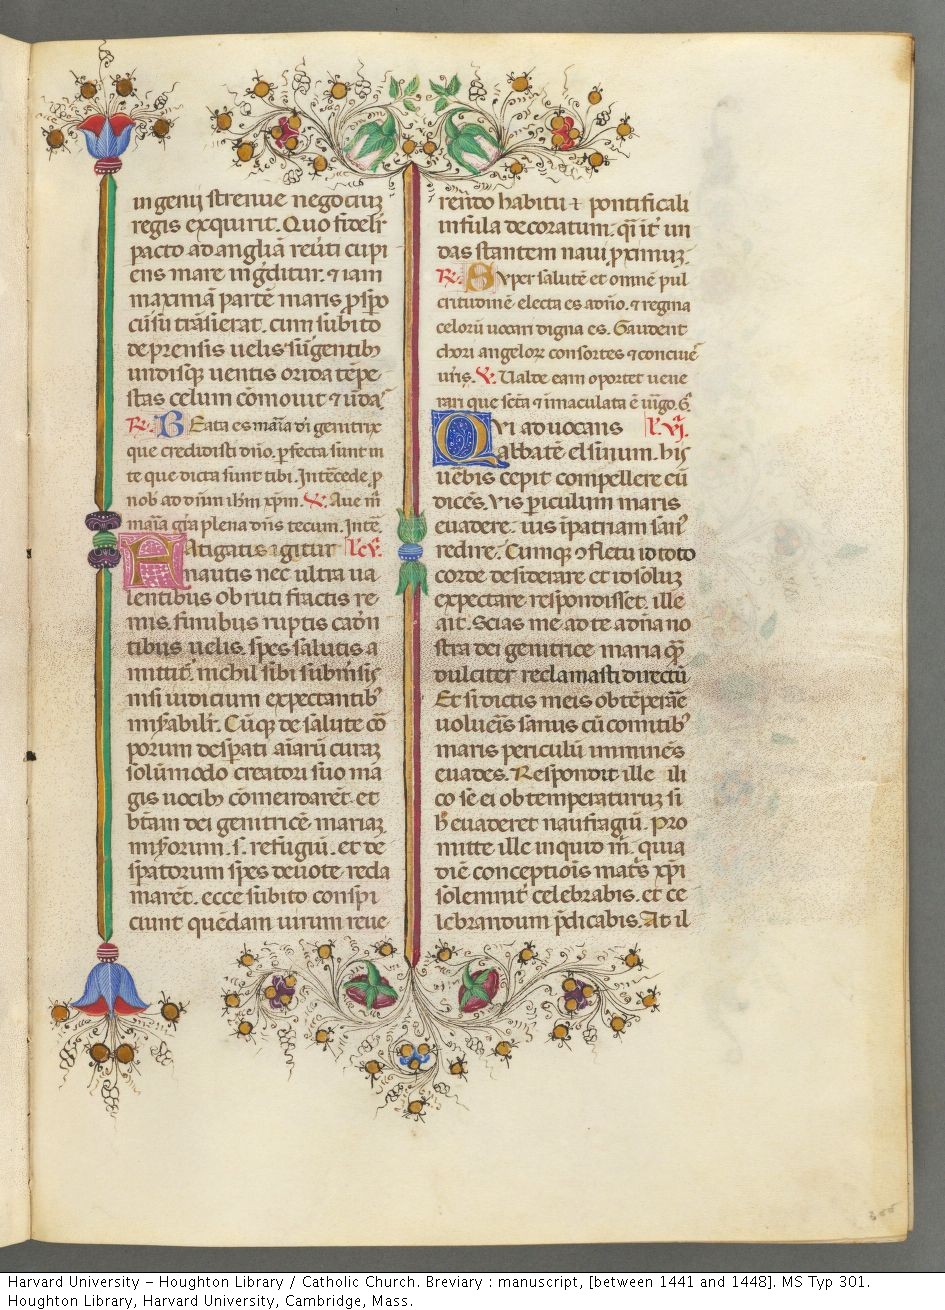 ingenij strenue negociuȝ
regis exquirit. Quo fideli
pacto ad angliā reuti cupi
ens mare ingditur. ⁊ iam
maximā partē maris ꝓspo
cūsu trāsierat. cum subito
deprensis uelis sugentibꝫ
undisqꝫ uentis orida tēpe
stas celum cōmouit ⁊ uda
℟. Eata es maīa di genitrix
que credidisti dn̄o. ꝑfecta sunt in
te que dicta sunt tibi. Intercede ꝓ
nob ad dn̄m ihm̄ xp̄m. ℣. Aue m̄
maīa gr̄a plena dn̄s tecum. Intē.
Fatigatis igitur lc̄. v̄.
nautis nec ultra ua
lentibus obruti fractis re
mis. funibus ruptis cadēn
tibus uelis. spes salutis a
mittit. nichil sibi submisis
nisi iudicium expectantibꝫ
misabilr. Cūqꝫ de salute cō
porum despati aīarū curaȝ
solūmodo creatori suo ma
gis uocibꝫ cōmendarēt. et
btām dei genitricē mariaȝ
misorum .s. refugiū. et de
spatorum spes deuote recla
marēt. ecce subito conspi
ciunt quēdam uirum reue
rendo habitu ⁊ pontificali
infula decoratum. qī it̄ un
das stantem naui ꝓximuȝ.
℟. Super salutē et omnē pul
critudinē electa es a dn̄o. ⁊ regina
celorū uocari digna es. Gaudent
chori angeloꝝ consortes ⁊ conciue
urīs. ℣. Ualde eam oportet uene
rari que scta ⁊ inmaculata ē uirgo. G.
Qui aduocans l. vi.
abbatē elsinum. hijs
uēbis cepit compellere cū
dicēs. Vis ꝑiculum maris
euadere. uis ī patriam san
redire. Cumqꝫ ꝯ fletu id toto
corde desiderare et id soluȝ
expectare respondisset. ille
ait. Scias me ad te a dn̄a no
stra dei genitrice maria quā
dulciter reclamasti directū
Et si dictis meis obtēperare
uolueīs sanus cū comitibꝫ
maris periculū imminēs
euades. Respondit ille ili
co se ei obtemperaturuȝ si
h̄ euaderet naufragiū. Pro
mitte ille inquid m̄. quia
diē conceptiois matīs xp̄i
solemnit celebrabis. et ce
lebrandum p̄dicabis. At il
Harvard University – Houghton Library / Catholic Church. Breviary : manuscript, [between 1441 and 1448]. MS Typ 301.
Houghton Library, Harvard University, Cambridge, Mass.